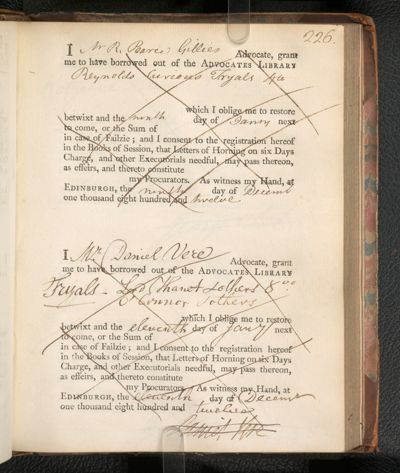 226.
I Mr R. Gillies Advocate, grant
me to have borrowed out of the ADVOCATES LIBRARY
Reynolds Curious Tryals 4to
which I oblige me to restore
betwixt and the ninth day of Janry next
to come, or the Sum of
in case of Failzie; and I consent to the registration hereof
in the Books of Session, that Letters of Horning on six Days
Charge, and other Executorials needful, may pass thereon,
as effeirs, and thereto constitute
my Procurators. As witness my Hand, at
EDINBURGH, the ninth day of Decemr
one thousand eight hundred and twelve
I Mr. Daniel Vere Advocate, grant
me to have borrowed out of the ADVOCATES LIBRARY
Tryals - Lord Thanet & others 8vo
O'Connor & others
which I oblige me to restore
betwixt and the eleventh day of Jany next
to come, or the Sum of
in case of Failzie; and I consent to the registration hereof
in the Books of Session, that Letters of Horning on six Days
Charge, and other Executorials needful, may pass thereon,
as effeirs, and thereto constitute
my Procurators. As witness my Hand, at
EDINBURGH, the eleventh day of Decemr
one thousand eight hundred and twelve
Vere